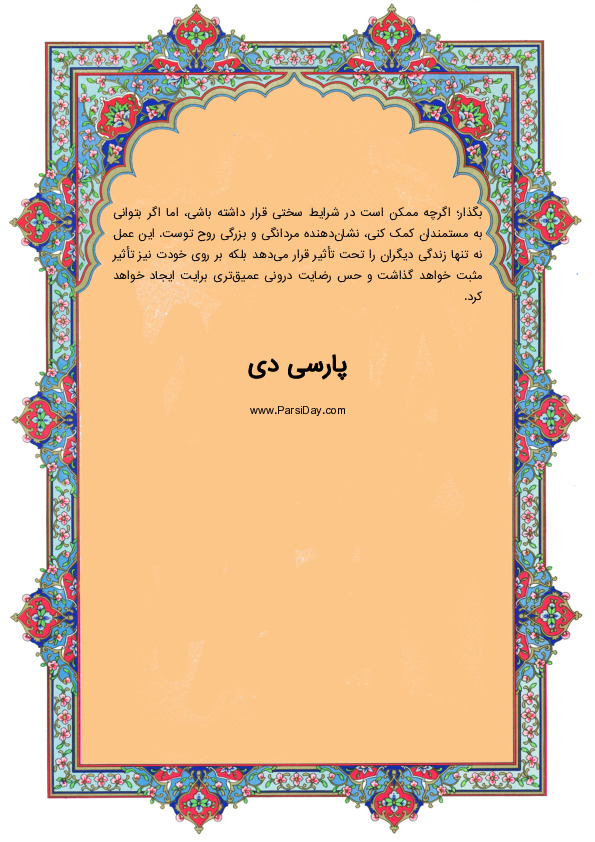 بگذار؛ اگرچه ممکن است در شرایط سختی قرار داشته باشی، اما اگر بتوانی
به مستمندان کمک کنی، نشان‌دهنده مردانگی و بزرگی روح توست. این عمل
نه تنها زندگی دیگران را تحت تأثیر قرار می‌دهد بلکه بر روی خودت نیز تأثیر
مثبت خواهد گذاشت و حس رضایت درونی عمیق‌تری برایت ایجاد خواهد
کرد.
پارسی دی
www.ParsiDay.com